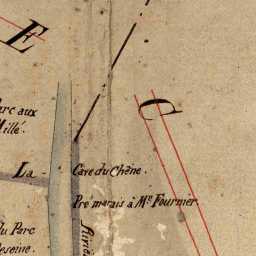 E
C
arc aux
Millé.
La
Cave du Chêne.
Pre marais à Mr. Fournier
du Parc